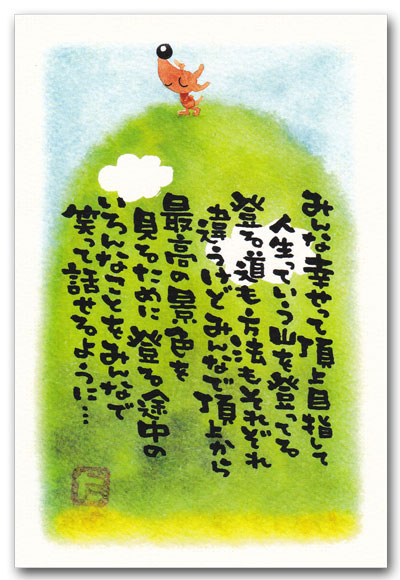 みんな幸せって頂上目指して
人生っていう山を登ってる
登る道も方法もそれぞれ
違うけどみんなで頂上から
最高の景色を
見るために登る途中の
いろんなことをみんなで
笑って話せるように…